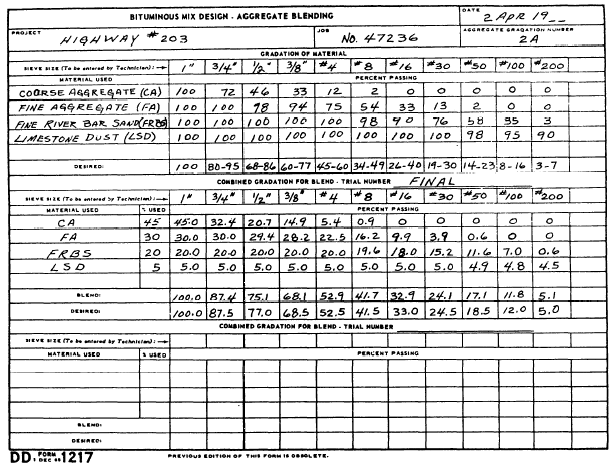 BITUMINOUS MIX DESIGN - AGGREGATE BLENDING
DATE
2 APR 19__
PROJECT
HIGHWAY #203
JOB
NO. 47236
AGGREGATE GRADATION NUMBER
2A
GRADATION OF MATERIAL
SIEVE SIZE (To be entered by Technician): → 1" 3/4" 1/2" 3/8" #4 #8 #16 #30 #50 #100 #200
MATERIAL USED PERCENT PASSING
COORSE AGGREGATE (CA) 100 72 46 33 12 2 0 0 0 0 0
FINE AGGREGATE (FA) 100 100 98 94 75 54 33 13 2 0 0
FINE RIVER BAR SAND (FRBS) 100 100 100 100 100 98 90 76 58 35 3
LIMESTONE DUST (LSD) 100 100 100 100 100 100 100 100 98 95 90
DESIRED: 100 80-95 68-86 60-77 45-60 34-49 26-40 19-30 14-23 8-16 3-7
COMBINED GRADATION FOR BLEND - TRIAL NUMBER FINAL
SIEVE SIZE (To be entered by Technician): → 1" 3/4" 1/2" 3/8" #4 #8 #16 #30 #50 #100 #200
MATERIAL USED % USED PERCENT PASSING
CA 45 45.0 32.4 20.7 14.9 5.4 0.9 0 0 0 0 0
FA 30 30.0 30.0 29.4 28.2 22.5 16.2 9.9 3.9 0.6 0 0
FRBS 20 20.0 20.0 20.0 20.0 20.0 19.6 18.0 15.2 11.6 7.0 0.6
LSD 5 5.0 5.0 5.0 5.0 5.0 5.0 5.0 5.0 4.9 4.8 4.5
BLEND: 100.0 87.4 75.1 68.1 52.9 41.7 32.9 24.1 17.1 11.8 5.1
DESIRED: 100.0 87.5 77.0 68.5 52.5 41.5 33.0 24.5 18.5 12.0 5.0
COMBINED GRADATION FOR BLEND - TRIAL NUMBER
SIEVE SIZE (To be entered by Technician): →
MATERIAL USED % USED PERCENT PASSING
BLEND:
DESIRED:
DD FORM 1 DEC 65 1217 PREVIOUS EDITION OF THIS FORM IS OBSOLETE.